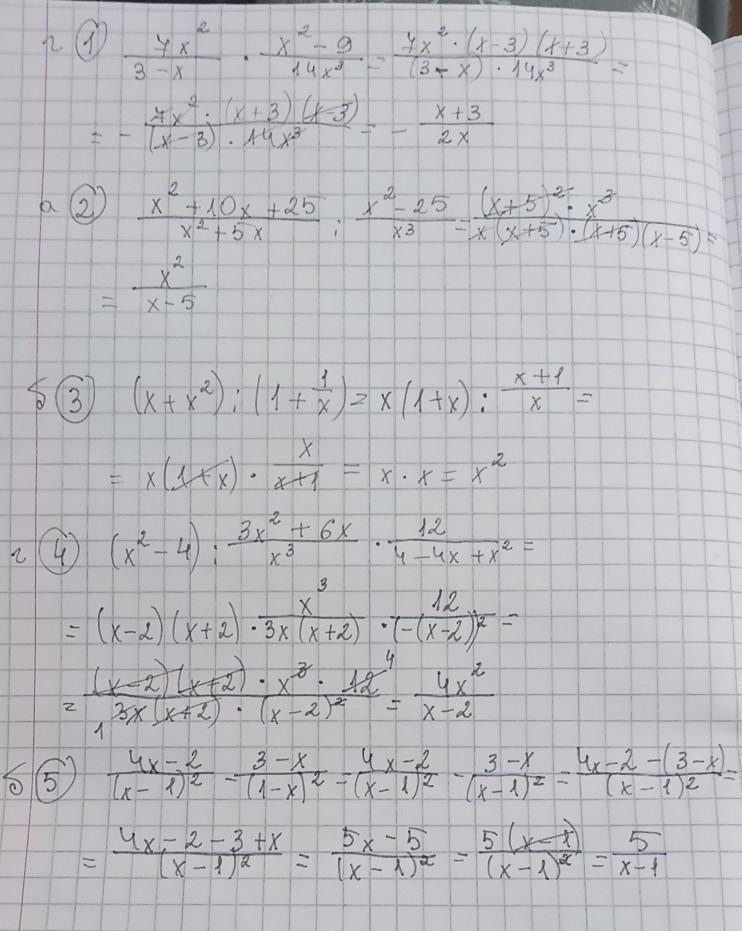 г ① 7x² / (3 - x) · (x² - 9) / 14x³ = 7x² · (x-3)(x+3) / ((3 - x) · 14x³) =
= - 7x² · (x+3)(x-3) / ((x-3) · 14x³) = - (x+3) / 2x
а ② (x² + 10x + 25) / (x² + 5x) : (x² - 25) / x³ = (x+5)² · x³ / (x(x+5) · (x+5)(x-5)) =
= x² / (x-5)
б ③ (x + x²) : (1 + 1/x) = x(1+x) : (x+1) / x =
= x(1+x) · x / (x+1) = x · x = x²
г ④ (x² - 4) : (3x² + 6x) / x³ · 12 / (4 - 4x + x²) =
= (x-2)(x+2) · x³ / (3x(x+2)) · 12 / (-(x-2))² =
= (x-2)(x+2) · x³ · 12 4 / (1 3x(x+2) · (x-2)²) = 4x² / (x-2)
б ⑤ (4x-2) / (x-1)² - (3-x) / (1-x)² = (4x-2) / (x-1)² - (3-x) / (x-1)² = (4x-2-(3-x)) / (x-1)² =
= (4x-2-3+x) / (x-1)² = (5x-5) / (x-1)² = 5(x-1) / (x-1)² = 5 / (x-1)